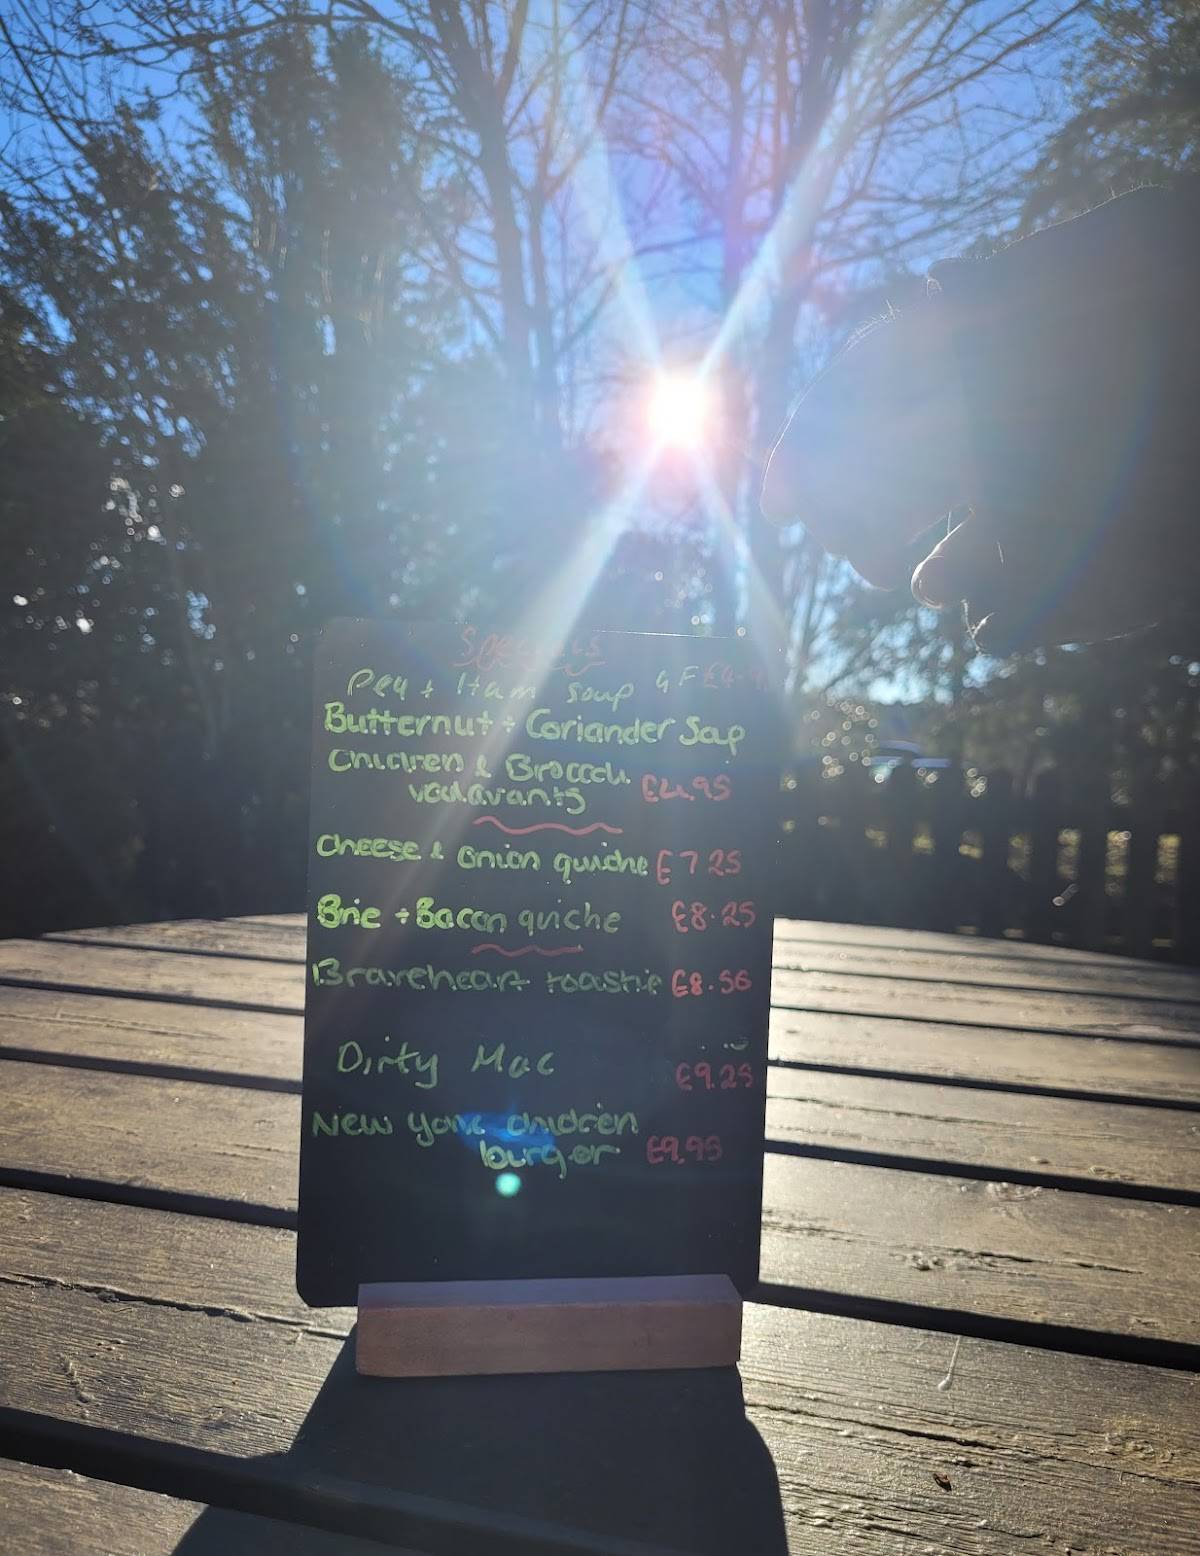 Specials
Pea + Ham soup GF
Butternut + Coriander Soup
Chicken & Broccoli
volavants £4.95
Cheese & Onion quiche £7.25
Brie + Bacon quiche £8.25
Braveheart toastie
Dirty Mac £9.25
New York chicken
burger £9.95